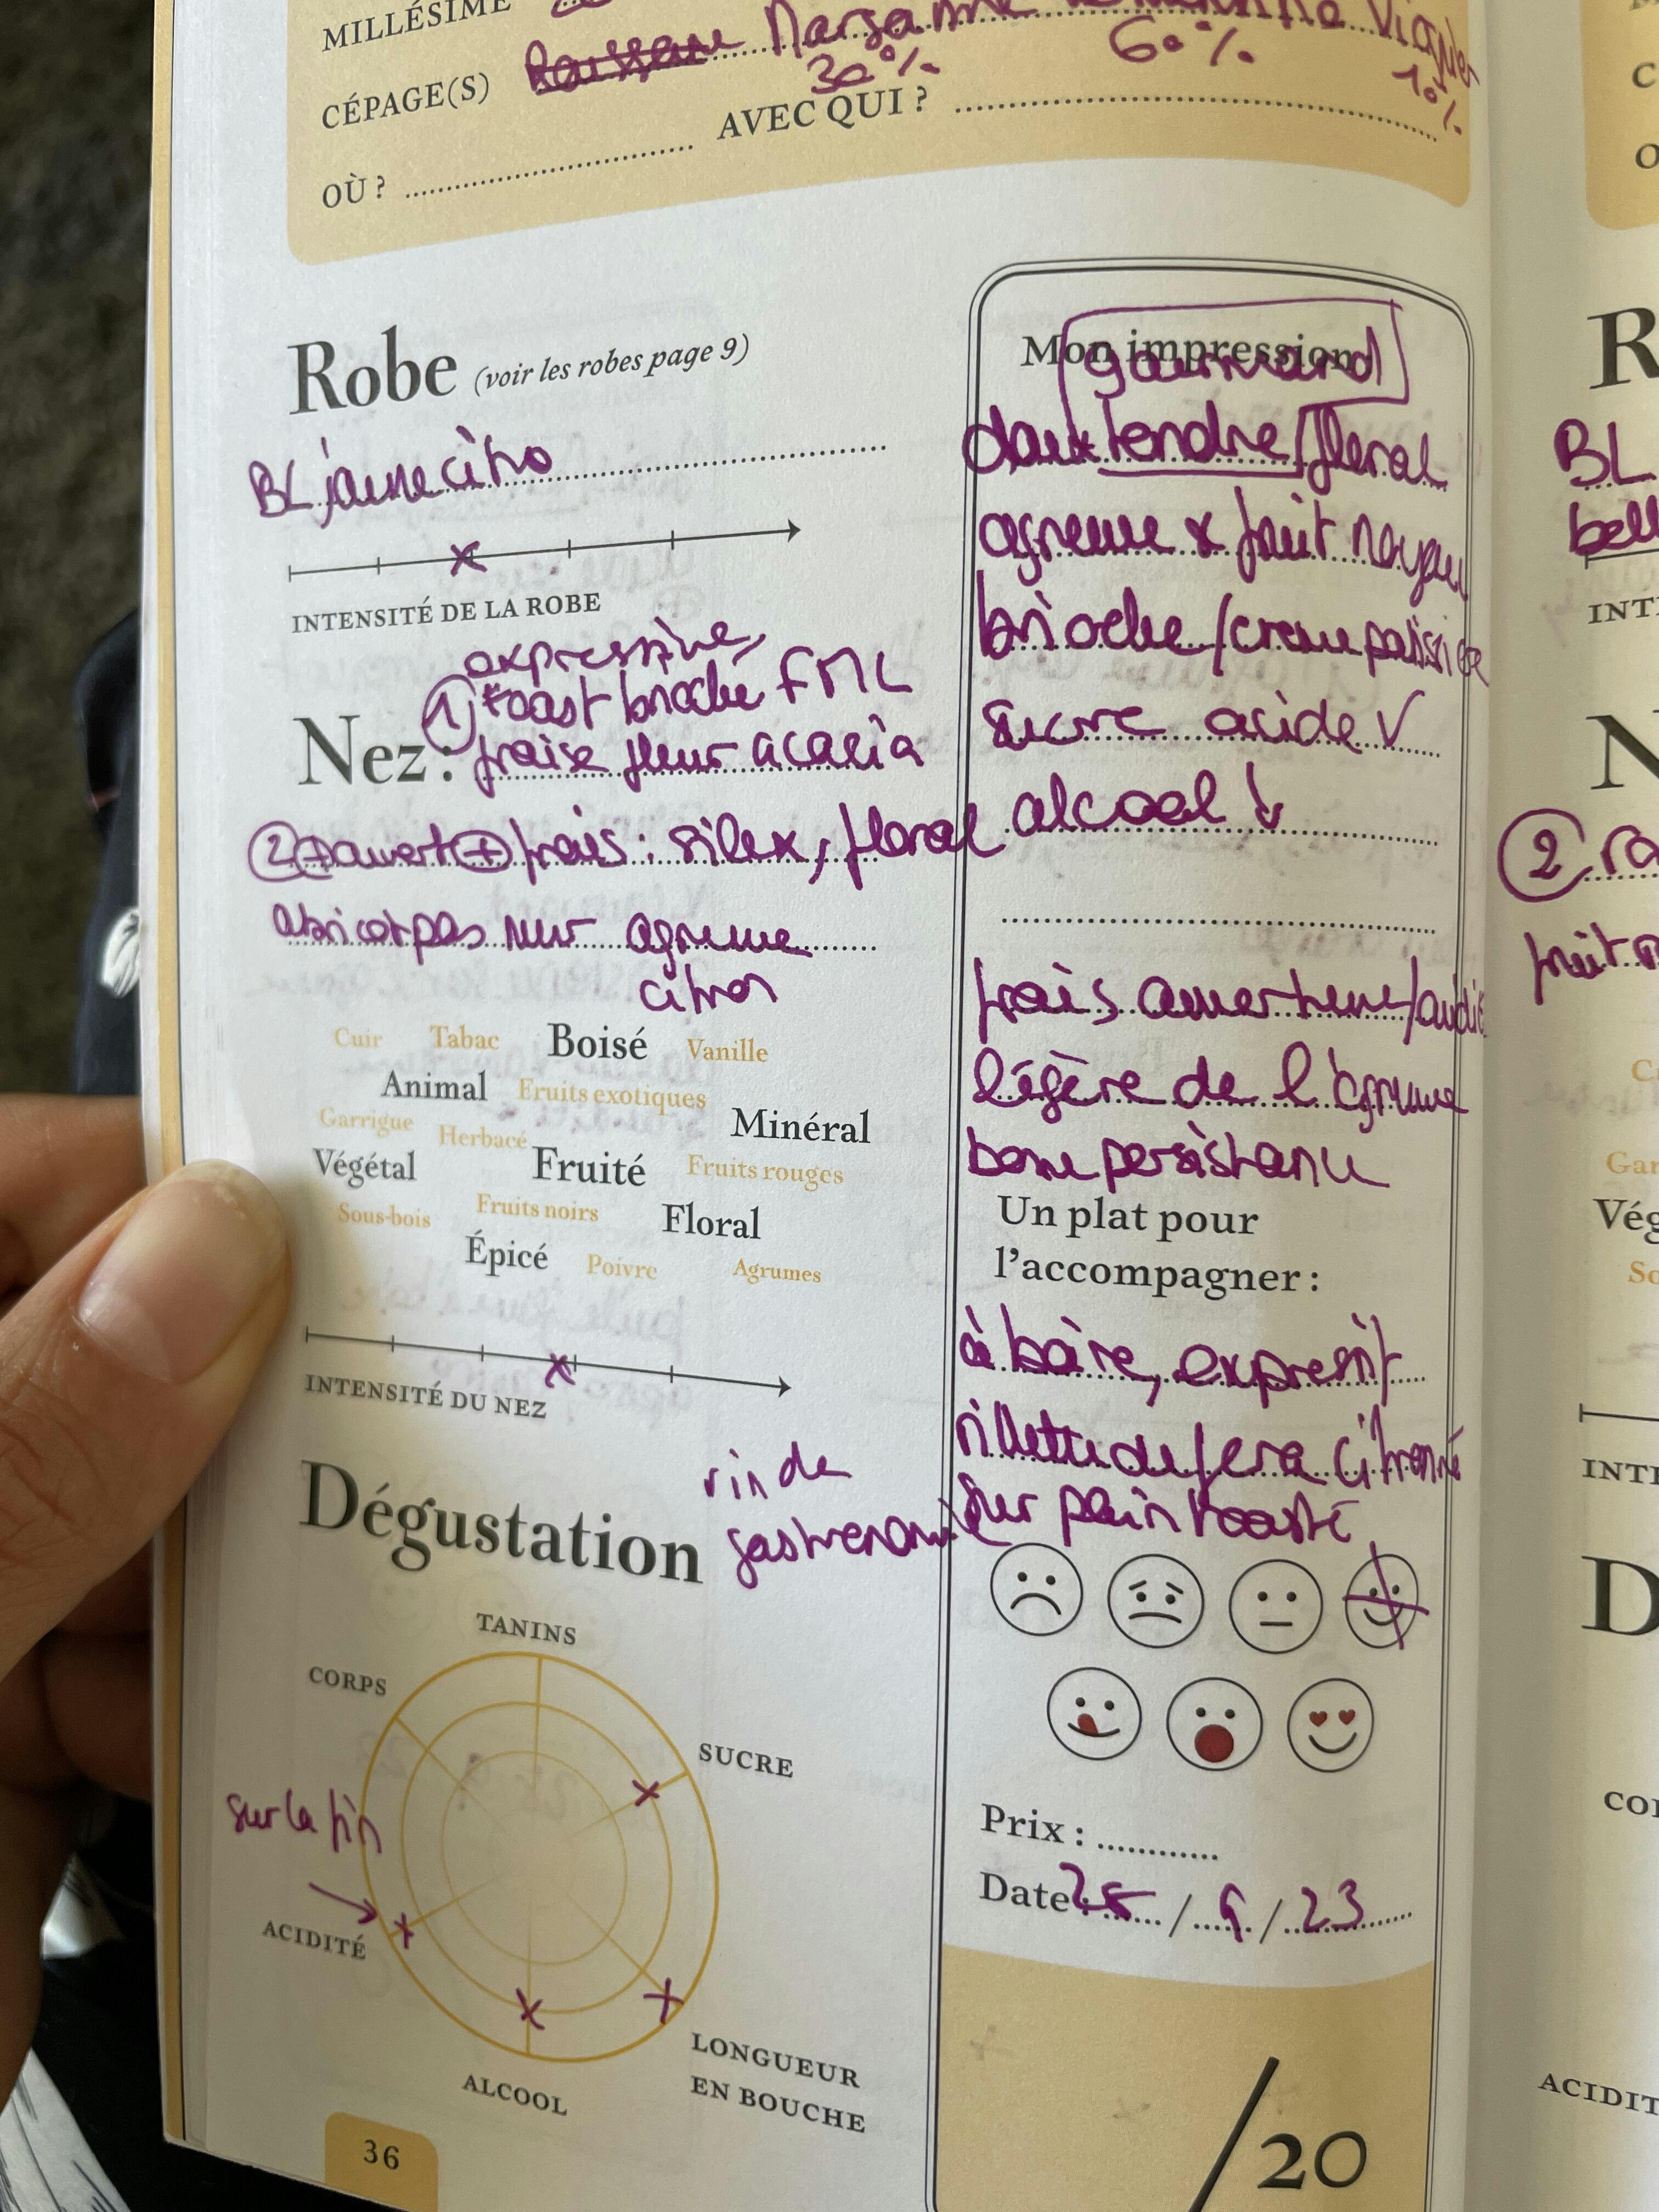 MILLÉSIME
CÉPAGE(S) Marsanne Viognier
30% 60% 10%
OÙ ? AVEC QUI ?
Robe (voir les robes page 9)
BL jaune citro
INTENSITÉ DE LA ROBE
expressive,
① toast brioché FML
Nez : fraise fleur acacia
② + ouvert + frais : silex, floral
abricot pas mur agrume
citron
Cuir Tabac Boisé Vanille
Animal Fruits exotiques
Garrigue Herbacé Minéral
Végétal Fruité Fruits rouges
Sous-bois Fruits noirs Floral
Épicé Poivre Agrumes
INTENSITÉ DU NEZ
Dégustation
vin de
gastronomie
TANINS
CORPS
SUCRE
sur la fin
ACIDITÉ
ALCOOL
LONGUEUR
EN BOUCHE
36
Mon impression
gourmand
doux tendre / floral
agrume & fruit noyau
brioche / creme patissiere
sucre acide ✓
alcool ↓
frais amertume /
légère de l'agrume
bonne persistance
Un plat pour
l'accompagner :
à boire, expressif
rillette de fera citronné
sur pain toasté
Prix :
Date : 25 / 6 / 23
/20
BL
②